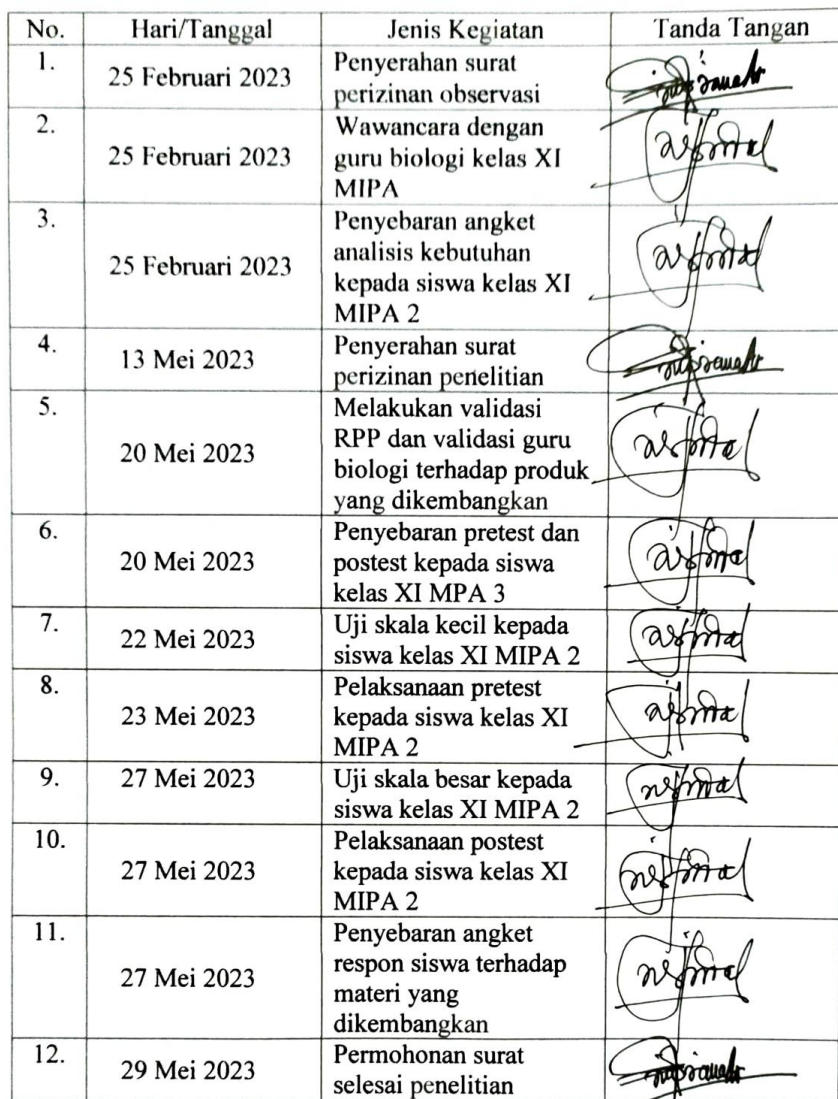 No. Hari/Tanggal Jenis Kegiatan Tanda Tangan
1. 25 Februari 2023 Penyerahan surat
perizinan observasi
2. 25 Februari 2023 Wawancara dengan
guru biologi kelas XI
MIPA
3. 25 Februari 2023 Penyebaran angket
analisis kebutuhan
kepada siswa kelas XI
MIPA 2
4. 13 Mei 2023 Penyerahan surat
perizinan penelitian
5. 20 Mei 2023 Melakukan validasi
RPP dan validasi guru
biologi terhadap produk
yang dikembangkan
6. 20 Mei 2023 Penyebaran pretest dan
postest kepada siswa
kelas XI MPA 3
7. 22 Mei 2023 Uji skala kecil kepada
siswa kelas XI MIPA 2
8. 23 Mei 2023 Pelaksanaan pretest
kepada siswa kelas XI
MIPA 2
9. 27 Mei 2023 Uji skala besar kepada
siswa kelas XI MIPA 2
10. 27 Mei 2023 Pelaksanaan postest
kepada siswa kelas XI
MIPA 2
11. 27 Mei 2023 Penyebaran angket
respon siswa terhadap
materi yang
dikembangkan
12. 29 Mei 2023 Permohonan surat
selesai penelitian